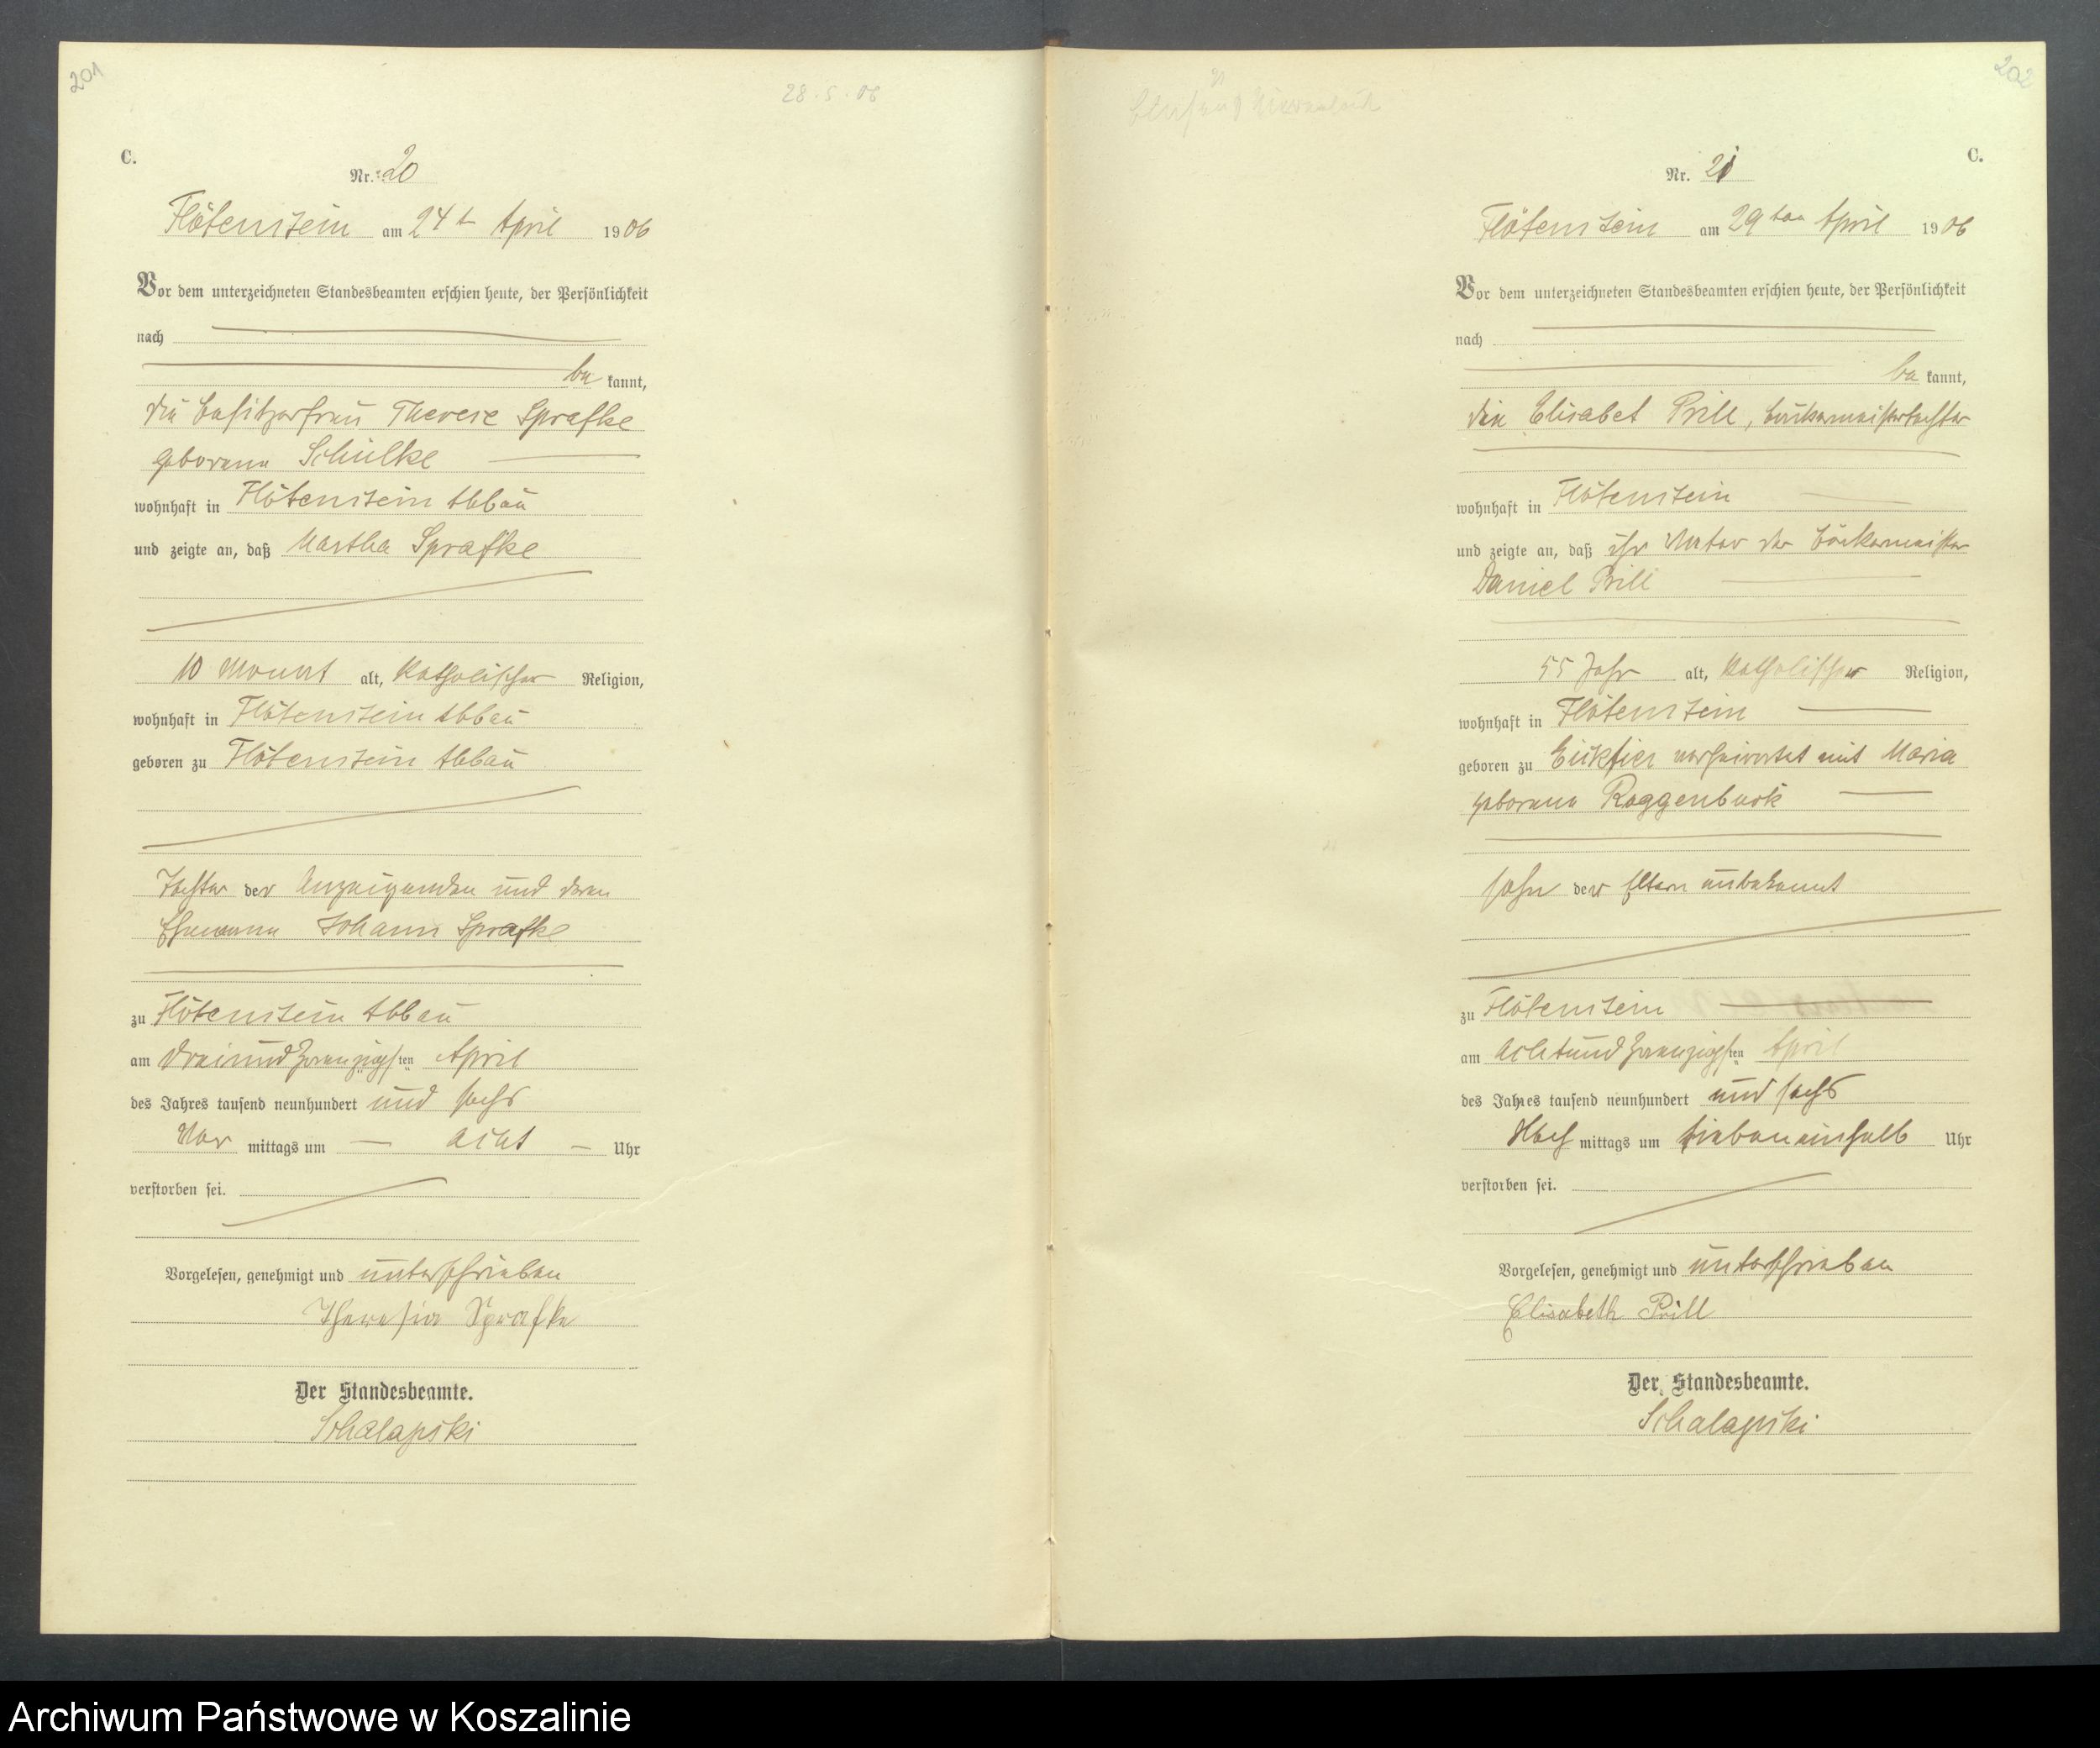 201
28.5.06
C.
Nr. 20
Flötenstein am 24t April 1906
Vor dem unterzeichneten Standesbeamten erschien heute, der Persönlichkeit
nach
be kannt,
die Besitzerfrau Therese Sprafke
geborene Schülke
wohnhaft in Flötenstein Abbau
und zeigte an, daß Martha Sprafke
10 Monat alt, katholischer Religion,
wohnhaft in Flötenstein Abbau
geboren zu Flötenstein Abbau
Tochter der Anzeigenden und deren
Ehemann Johann Sprafke
zu Flötenstein Abbau
am dreiundzwanzigsten April
des Jahres tausend neunhundert und sechs
Vor mittags um acht Uhr
verstorben sei.
Vorgelesen, genehmigt und unterschrieben
Theresia Sprafke
Der Standesbeamte.
Schalapski
202
C.
Nr. 21
Flötenstein am 29ten April 1906
Vor dem unterzeichneten Standesbeamten erschien heute, der Persönlichkeit
nach
be kannt,
die Elisabet Prill, Bäckermeistertochter
wohnhaft in Flötenstein
und zeigte an, daß ihr Vater der Bäckermeister
Daniel Prill
55 Jahr alt, katholischer Religion,
wohnhaft in Flötenstein
geboren zu Eickfier verheiratet mit Maria
geborene Roggenbuck
Sohn der Eltern unbekannt
zu Flötenstein
am achtundzwanzigsten April
des Jahres tausend neunhundert und sechs
Nach mittags um siebeneinhalb Uhr
verstorben sei.
Vorgelesen, genehmigt und unterschrieben
Elisabeth Prill
Der Standesbeamte.
Schalapski
Archiwum Państwowe w Koszalinie